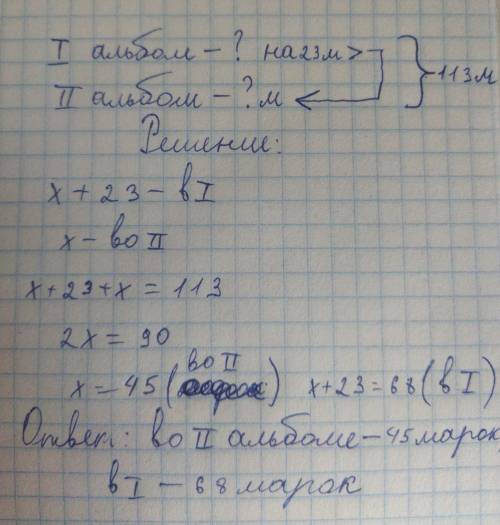 I альбом - ? на 23м > } 113м
II альбом - ? м
Решение:
x + 23 - в I
x - во II
x + 23 + x = 113
2x = 90
x = 45 (во II) x + 23 = 68 (в I)
Ответ: во II альбоме - 45 марок,
в I - 68 марок